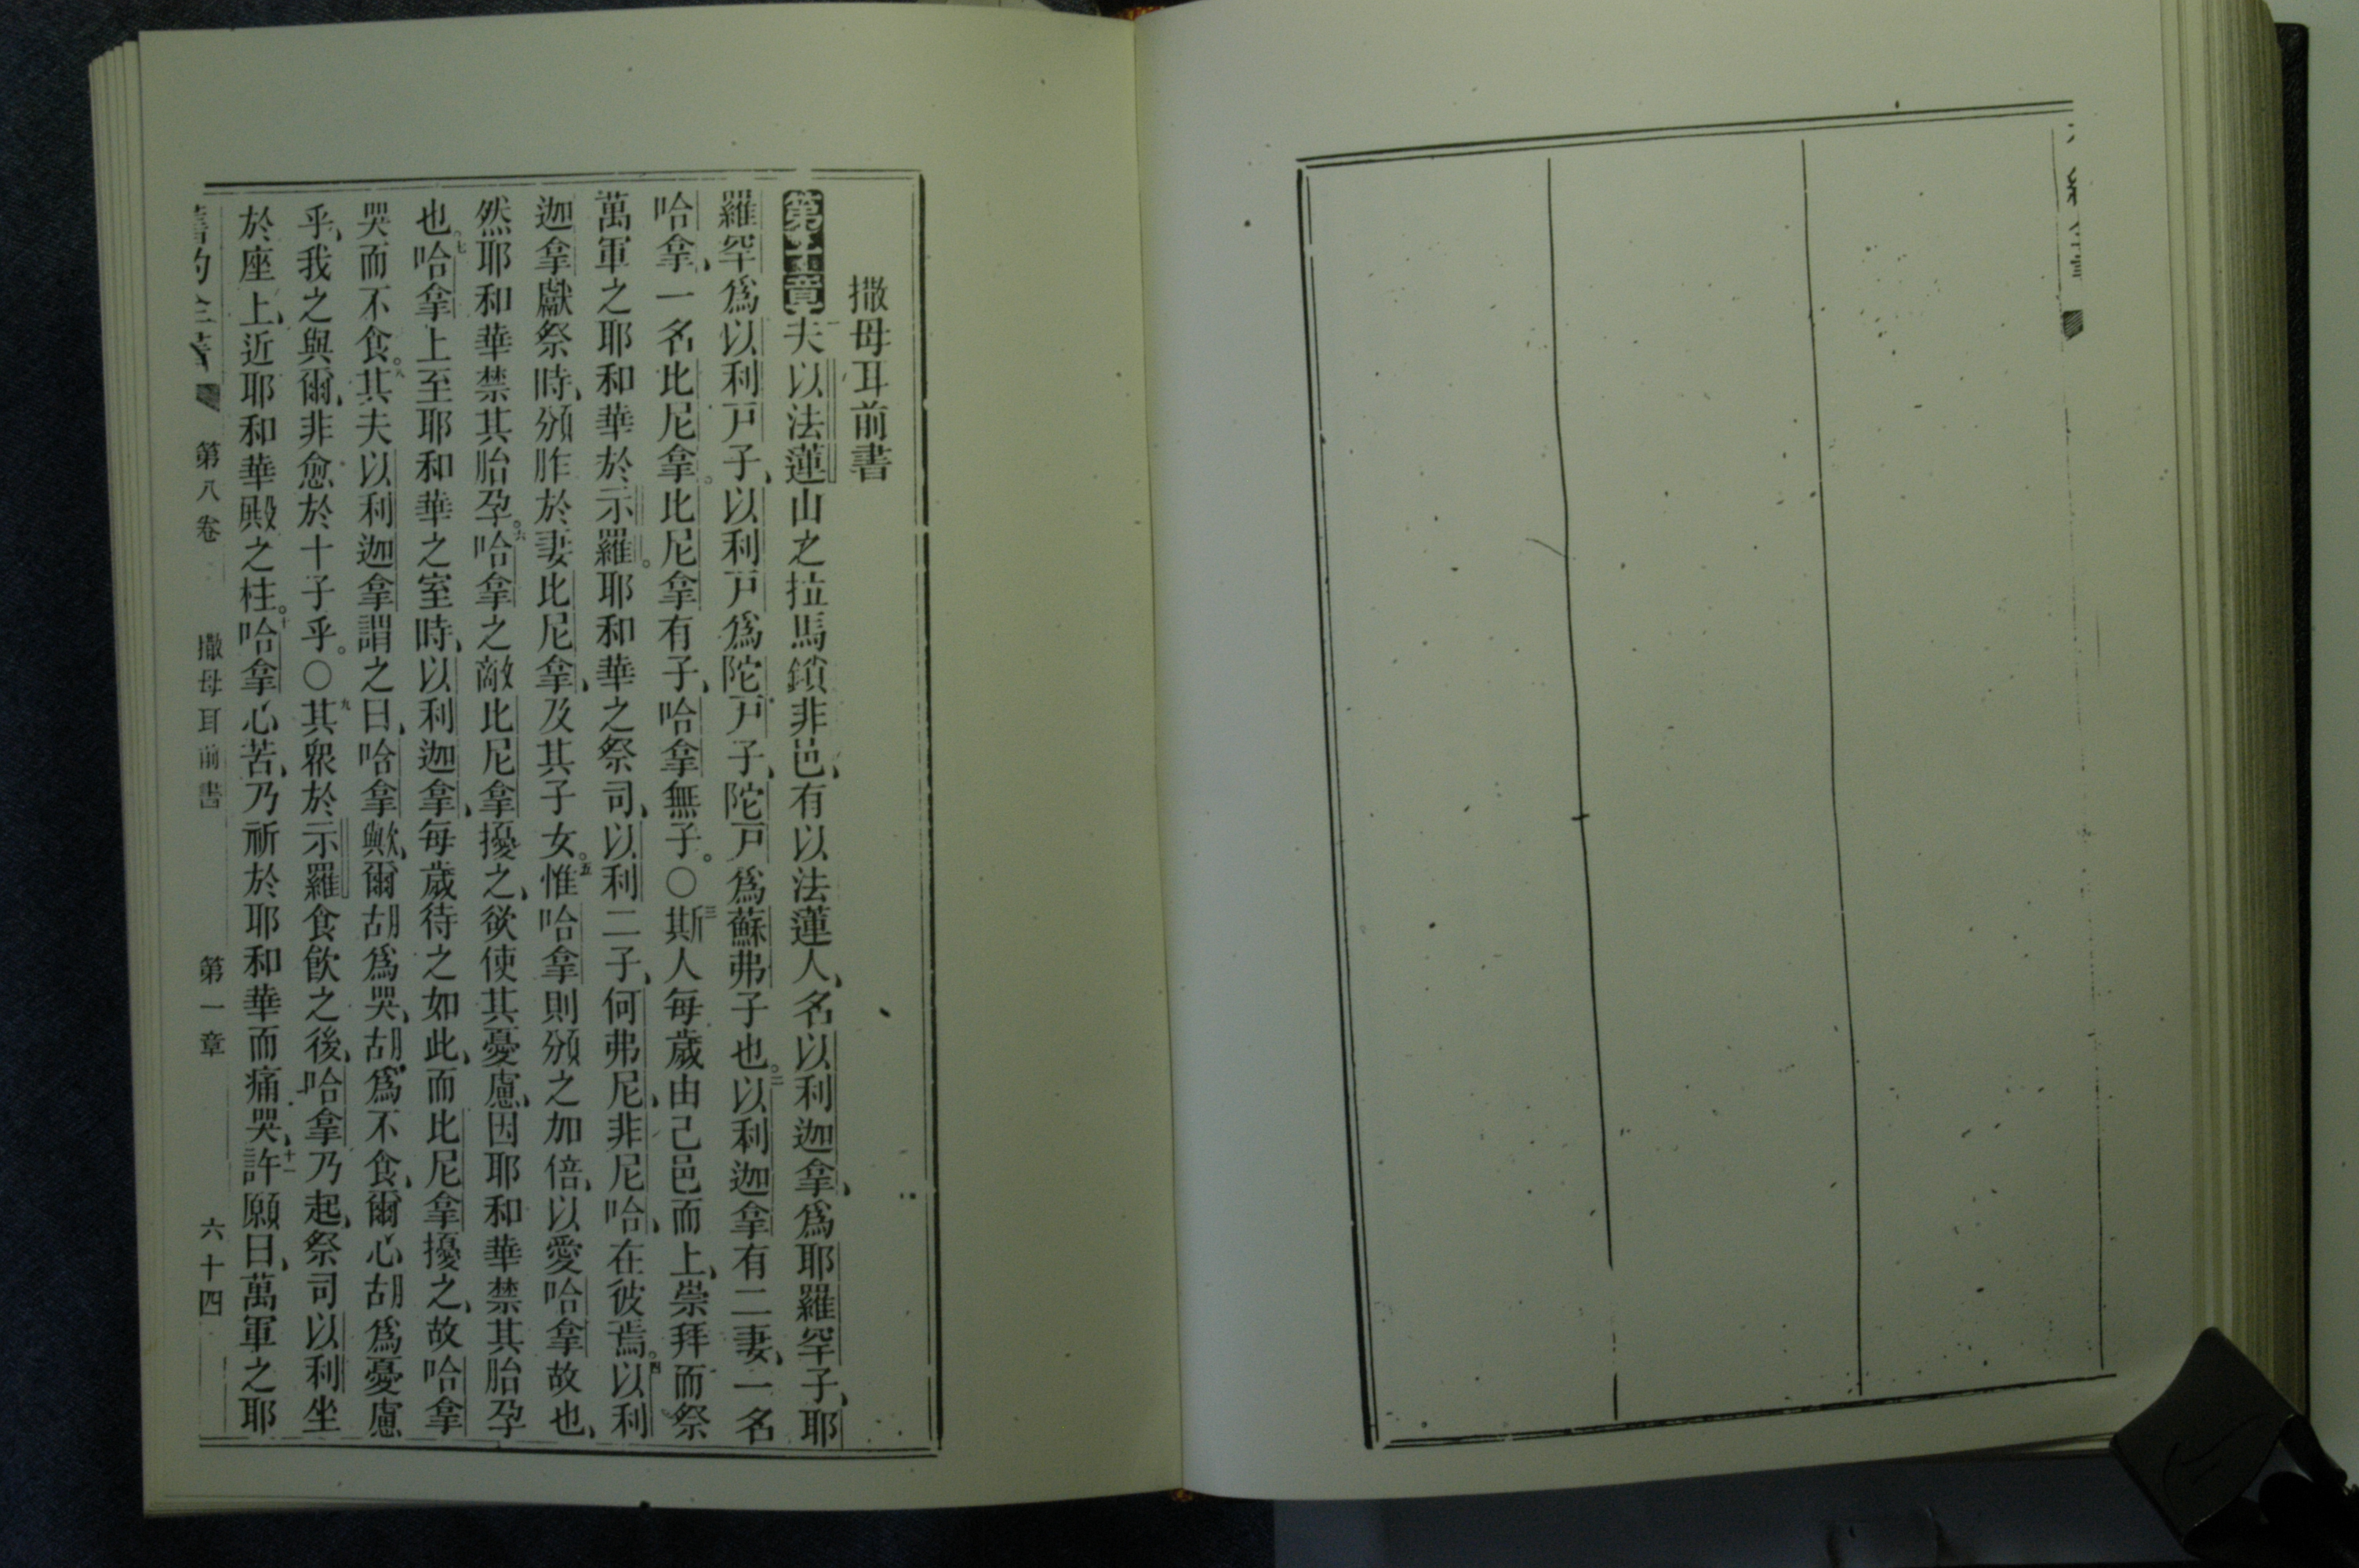 撒母耳前書
第一章 一夫以法蓮山之拉馬鎖非邑、有以法蓮人、名以利迦拿、爲耶羅罕子、耶
羅罕爲以利戶子、以利戶爲陀戶子、陀戶爲蘇弗子也。二以利迦拿有二妻、一名
哈拿、一名比尼拿。比尼拿有子、哈拿無子。〇三斯人每歲由己邑而上、崇拜而祭
萬軍之耶和華於示羅。耶和華之祭司、以利二子、何弗尼、非尼哈、在彼焉。四以利
迦拿獻祭時、頒胙於妻比尼拿、及其子女。五惟哈拿則頒之加倍、以愛哈拿故也、
然耶和華禁其胎孕。六哈拿之敵比尼拿擾之、欲使其憂慮、因耶和華禁其胎孕
也。七哈拿上至耶和華之室時、以利迦拿、每歲待之如此、而比尼拿擾之、故哈拿
哭而不食。八其夫以利迦拿謂之曰、哈拿歟、爾胡爲哭、胡爲不食、爾心胡爲憂慮
乎、我之與爾、非愈於十子乎。〇九其衆於示羅食飲之後、哈拿乃起、祭司以利坐
於座上、近耶和華殿之柱。十哈拿心苦、乃祈於耶和華而痛哭、十一許願曰、萬軍之耶
第八卷 撒母耳前書 第一章 六十四